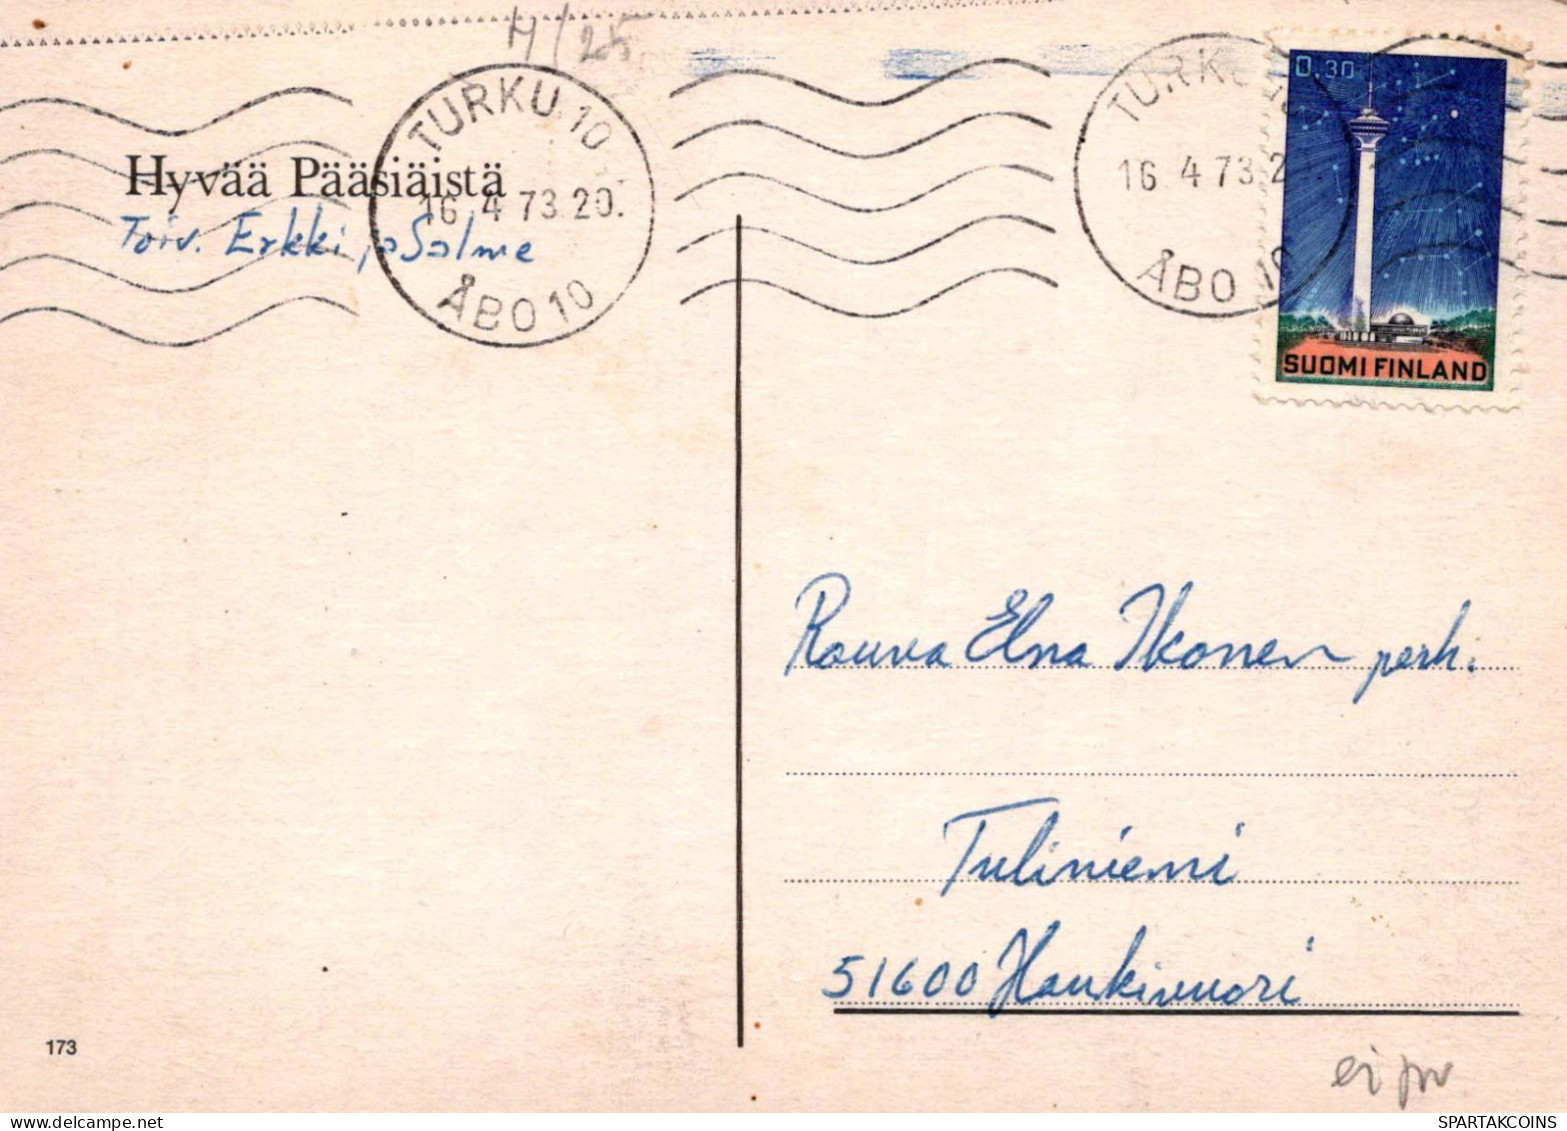 H/25
TURKU 10
16.4.73.20.
ÅBO 10
TURKU
16.4.73.2
ÅBO 10
0.30
SUOMI FINLAND
Hyvää Pääsiäistä
Toiv. Erkki ja Solme
Rouva Elna Ikonen perh.
Tuliniemi
51600 Haukivuori
173
ei pv
SPARTAKCOINS